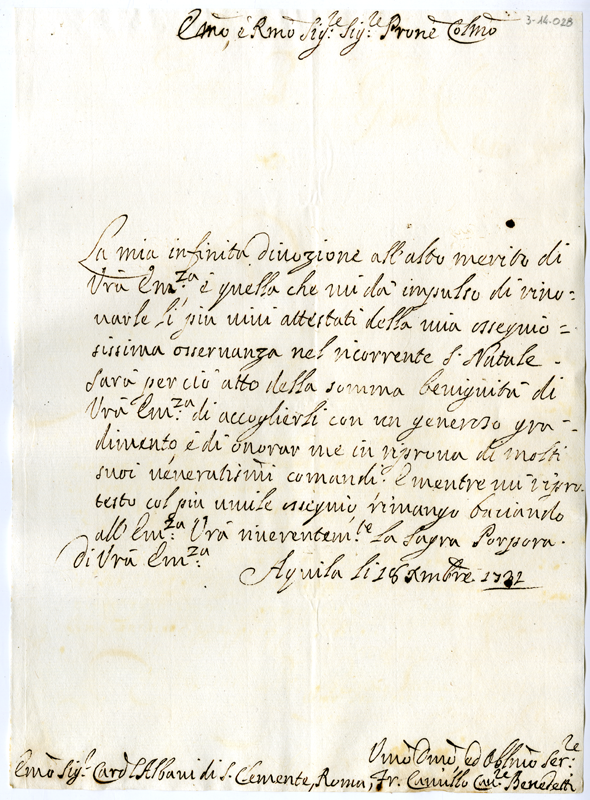 3-14-028
Emo, e Rmo Sig.re Sig.re Prone Colmo
La mia infinita divozione all'alto merito di
Vra Em.za è quella che mi dà impulso di rino=
varle li più vivi attestati della mia ossequio=
sissima osservanza nel ricorrente S. Natale.
Sarà perciò atto della somma benignità di
Vra Em.za di accoglierli con un generoso gra=
dimento, e di onorar me in riprova di molti
suoi veneratissimi comandi. E mentre mi ripro=
testo col più umile ossequio rimango baciando
all'Em.za Vra riverentem.te la Sagra Porpora.
Di Vra Em.za
Aquila li 18 Xmbre
Umo Dmo, ed Obblmo Ser.re
Emo Sig.r Card.l Albani di S. Clemente, Roma, Fr. Camillo Cav.re Benedetti